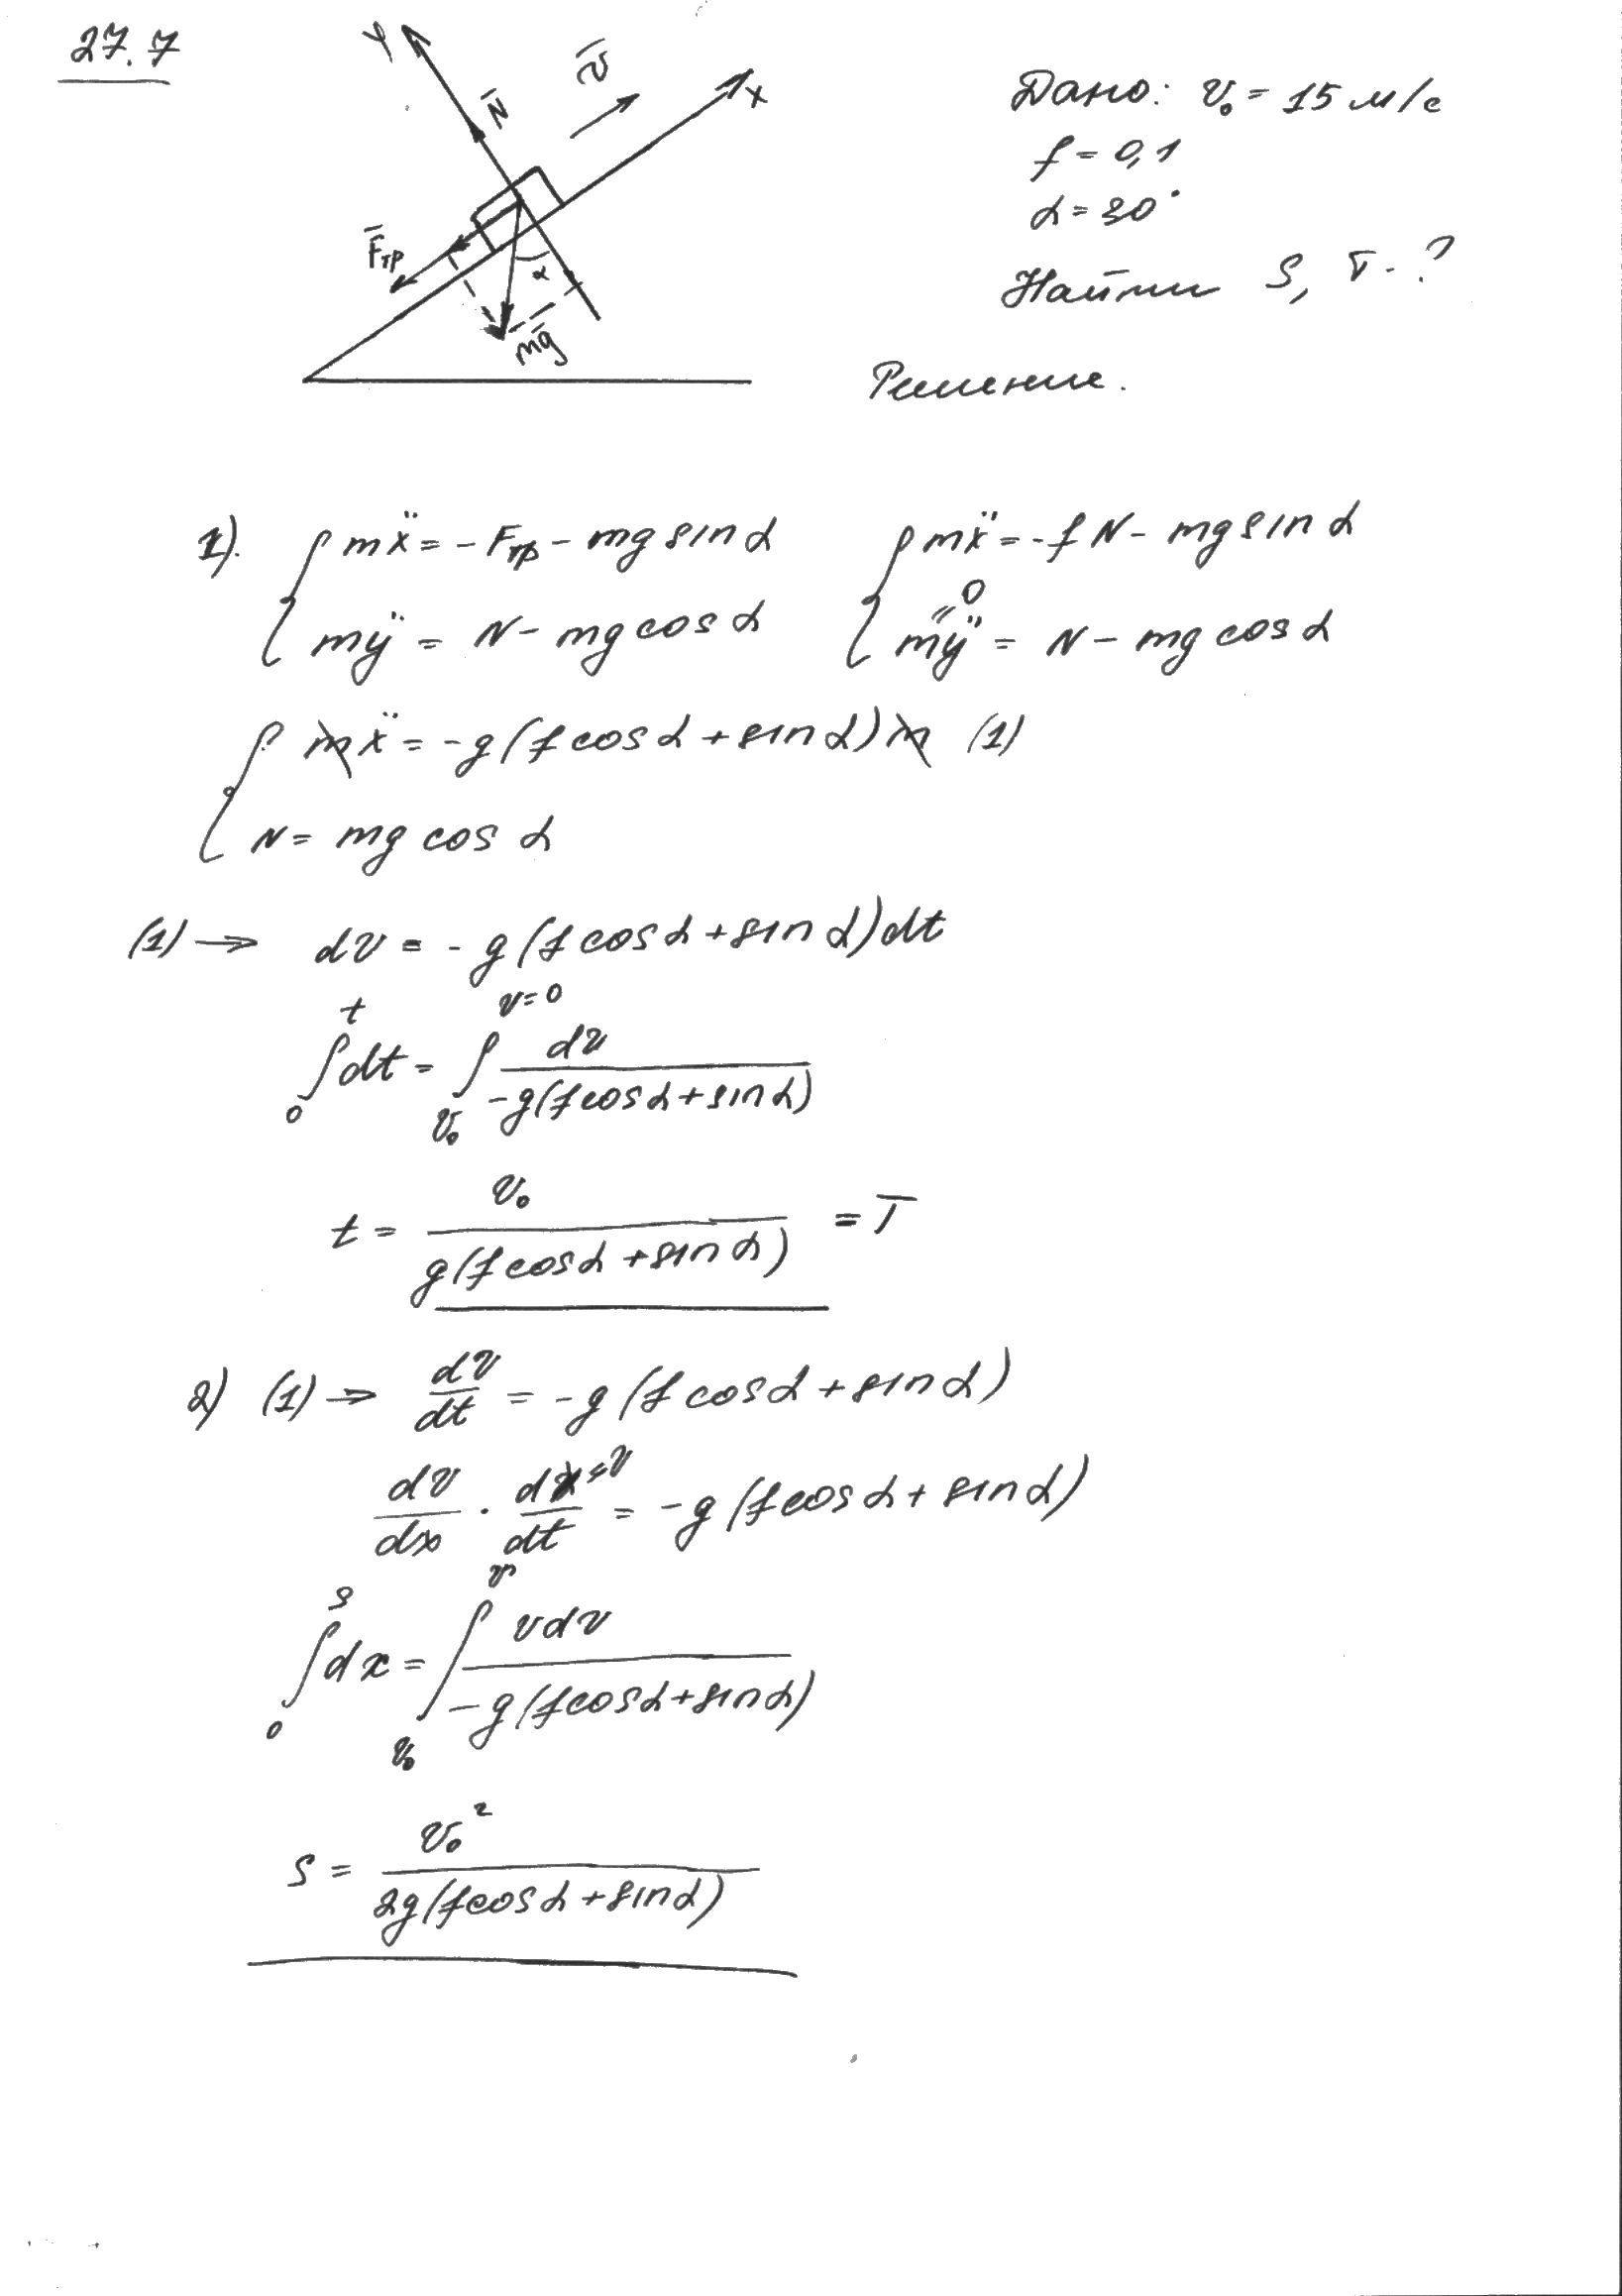 27.7
Y
N̄
v̄
X
F̄тр
α
mḡ
Дано: v₀ = 15 м/с
f = 0,1
α = 30°
Найти S, T - ?
Решение.
1). { mẍ = - Fтр - mg sin α { mẍ = - f N - mg sin α
0
{ mÿ = N - mg cos α { mÿ = N - mg cos α
{ mẍ = - g (f cos α + sin α) m (1)
{ N = mg cos α
(1) → dv = - g (f cos α + sin α) dt
∫₀ᵗ dt = ∫_{v₀}^{v=0} dv / (-g (f cos α + sin α))
t = v₀ / (g (f cos α + sin α)) = T
2) (1) → dv/dt = - g (f cos α + sin α)
dv/dx · dx/dt = v = - g (f cos α + sin α)
∫₀ˢ dx = ∫_{v₀}^{v} v dv / (-g (f cos α + sin α))
S = v₀² / (2g (f cos α + sin α))